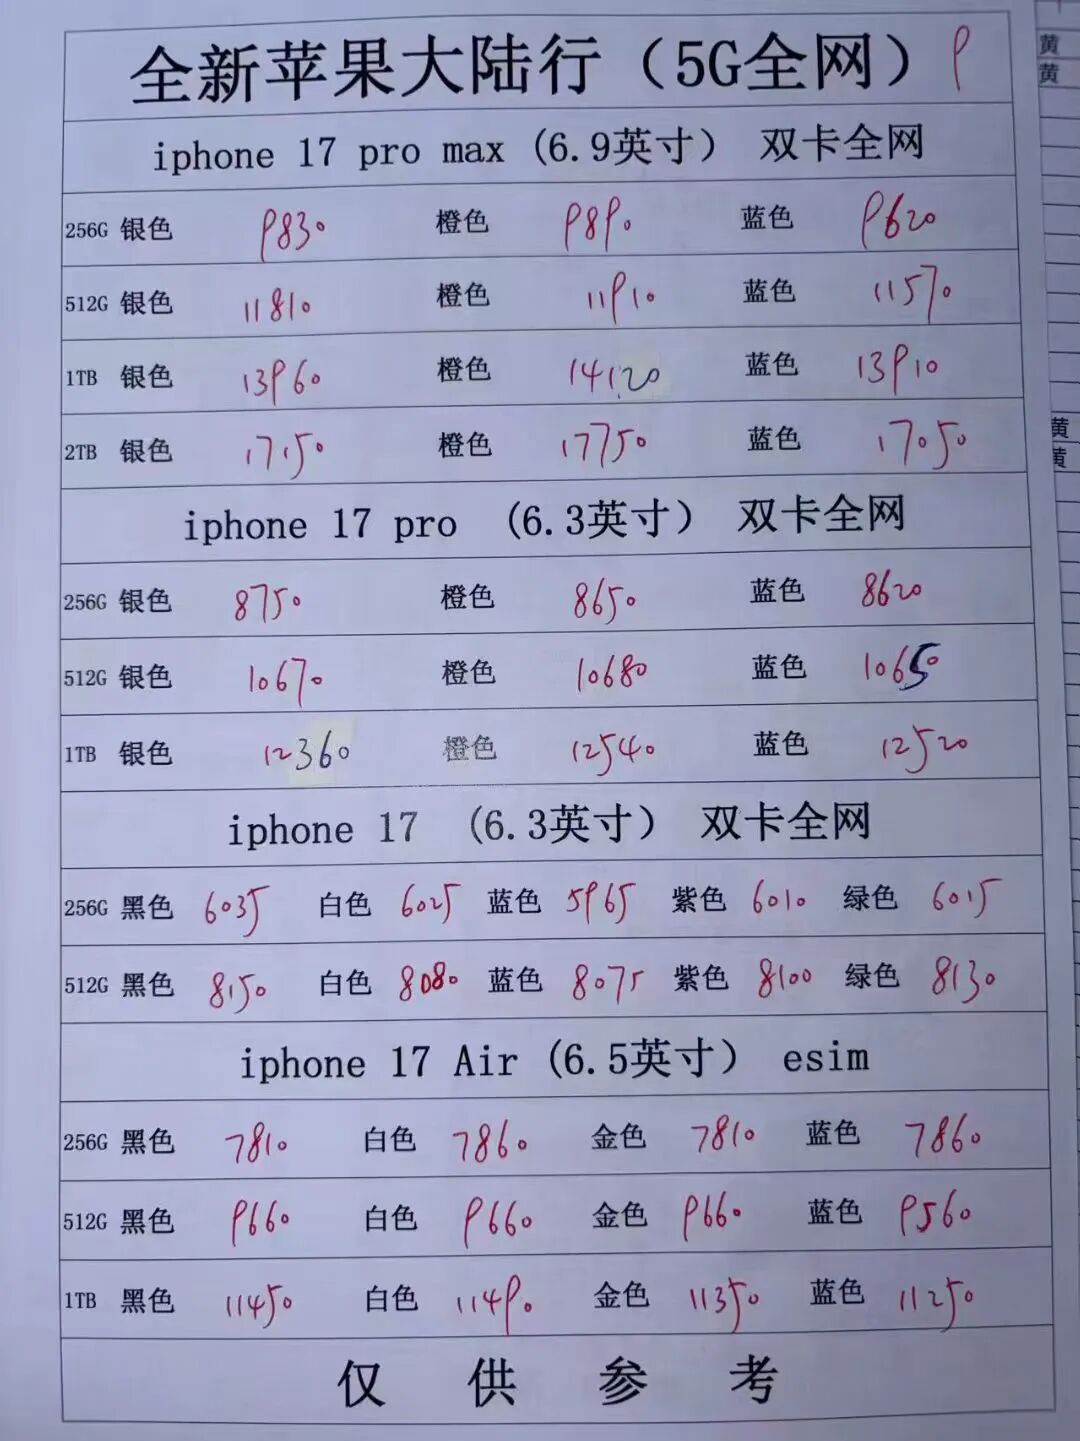 全新苹果大陆行（5G全网）9
iphone 17 pro max (6.9英寸） 双卡全网
256G 银色 9830 橙色 9890 蓝色 9620
512G 银色 11810 橙色 11910 蓝色 11570
1TB 银色 13960 橙色 14120 蓝色 13910
2TB 银色 17150 橙色 17750 蓝色 17050
iphone 17 pro （6.3英寸） 双卡全网
256G 银色 8750 橙色 8650 蓝色 8620
512G 银色 10670 橙色 10680 蓝色 10650
1TB 银色 12360 橙色 12540 蓝色 12520
iphone 17 （6.3英寸） 双卡全网
256G 黑色 6035 白色 6025 蓝色 5965 紫色 6010 绿色 6015
512G 黑色 8150 白色 8080 蓝色 8075 紫色 8100 绿色 8130
iphone 17 Air (6.5英寸） esim
256G 黑色 7810 白色 7860 金色 7810 蓝色 7860
512G 黑色 9660 白色 9660 金色 9660 蓝色 9560
1TB 黑色 11450 白色 11490 金色 11350 蓝色 11250
仅供参考
黄
黄
黄
黄